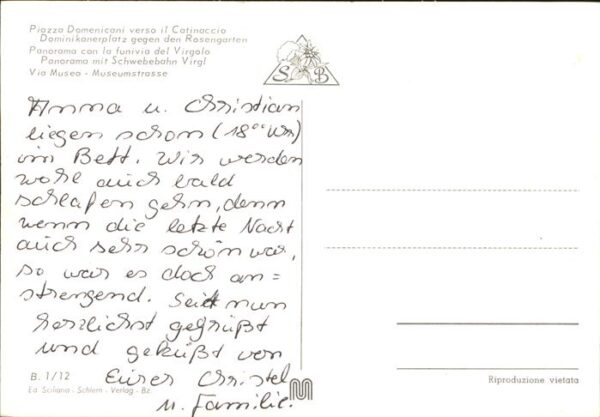 Piazza Domenicani verso il Catinaccio
Dominikanerplatz gegen den Rosengarten
Panorama con la funivia del Virgolo
Panorama mit Schwebebahn Virgl
Via Museo - Museumstrasse
S B
Anna u. Christian
liegen schon (18°° Uhr)
im Bett. Wir werden
wohl auch bald
schlafen gehn, denn
wenn die letzte Nacht
auch sehr schön war,
so war es doch an=
strengend. Seid nun
herzlichst gegrüßt
und geküßt von
Eurer Christel
u. Familie.
B. 1/12
Ed Sciliana - Schlern - Verlag - Bz
Riproduzione vietata